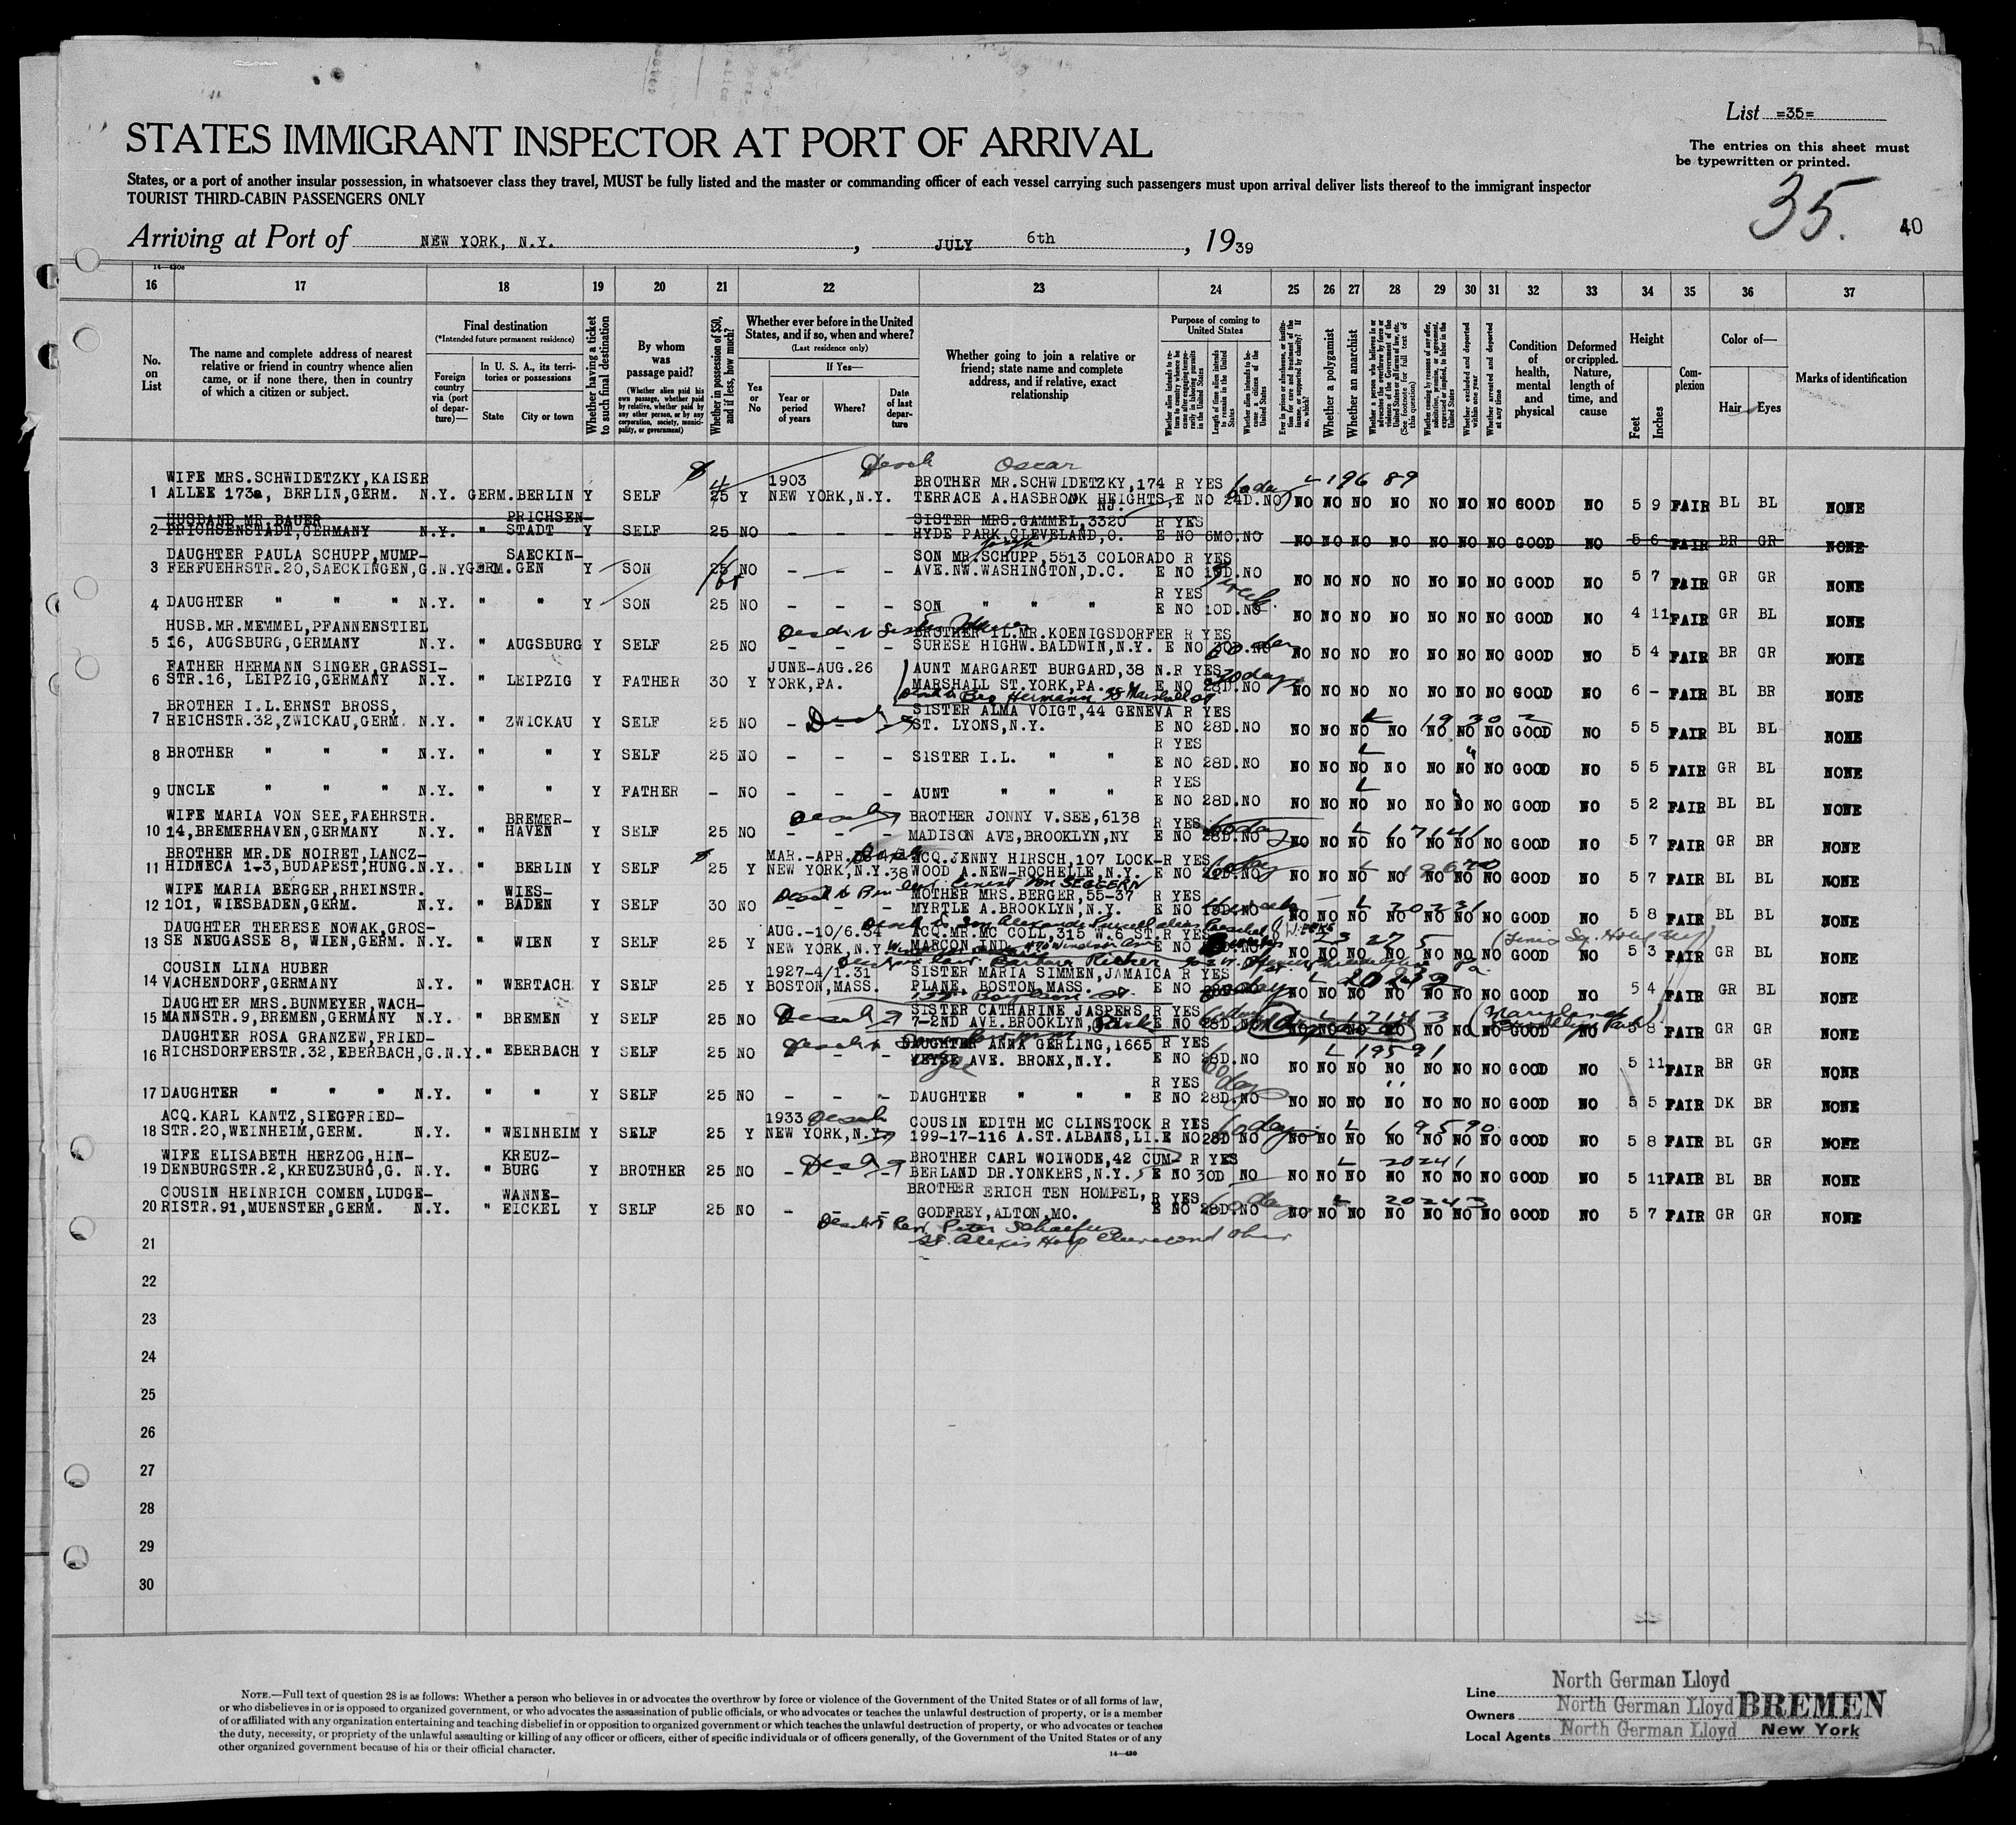 List =35=
The entries on this sheet must
be typewritten or printed.
STATES IMMIGRANT INSPECTOR AT PORT OF ARRIVAL
States, or a port of another insular possession, in whatsoever class they travel, MUST be fully listed and the master or commanding officer of each vessel carrying such passengers must upon arrival deliver lists thereof to the immigrant inspector
TOURIST THIRD-CABIN PASSENGERS ONLY
35. 40
Arriving at Port of NEW YORK, N.Y. , JULY 6th , 1939
16 17 18 19 20 21 22 23 24 25 26 27 28 29 30 31 32 33 34 35 36 37
No. on List
The name and complete address of nearest relative or friend in country whence alien came, or if none there, then in country of which a citizen or subject.
Final destination
(*Intended future permanent residence)
Foreign country via (port of departure)—
In U. S. A., its territories or possessions
State City or town
Whether having a ticket to such final destination
By whom was passage paid?
(Whether alien paid his own passage, whether paid by relative, whether paid by any other person, or by any corporation, society, municipality, or government)
Whether in possession of $50, and if less, how much?
Whether ever before in the United States, and if so, when and where?
(Last residence only)
Yes or No
If Yes—
Year or period of years
Where?
Date of last departure
Whether going to join a relative or friend; state name and complete address, and if relative, exact relationship
Purpose of coming to United States
Length of time alien intends to remain in the United States
Whether alien intends to become a citizen of the United States
Whether a polygamist
Whether an anarchist
Whether excluded and deported within one year
Whether arrested and deported at any time
Condition of health, mental and physical
Deformed or crippled. Nature, length of time, and cause
Height
Feet Inches
Complexion
Color of—
Hair Eyes
Marks of identification
Oscar
WIFE MRS.SCHWIDETZKY,KAISER 1903 BROTHER MR.SCHWIDETZKY,174 R YES L 196 89
1 ALLEE 173a, BERLIN,GERM. N.Y. GERM.BERLIN Y SELF 25 Y NEW YORK,N.Y. TERRACE A.HASBROUK HEIGHTS, E NO 24D.NO NO NO NO NO NO NO NO GOOD NO 5 9 FAIR BL BL NONE
NJ.
HUSBAND MR.BAUER PRICHSEN- SISTER MRS.GAMMEL,3320 R YES
2 PRICHSENSTADT,GERMANY N.Y. " STADT Y SELF 25 NO - - - HYDE PARK,CLEVELAND,O. E NO 6MO.NO NO NO NO NO NO NO NO GOOD NO 5 6 FAIR BR GR NONE
DAUGHTER PAULA SCHUPP,MUMP- SAECKIN- SON MR.SCHUPP,5513 COLORADO R YES
3 FERFUEHRSTR.20,SAECKINGEN,G.N.Y.GERM.GEN Y SON 25 NO - - - AVE.NW.WASHINGTON,D.C. E NO 10D.NO NO NO NO NO NO NO NO GOOD NO 5 7 FAIR GR GR NONE
R YES
4 DAUGHTER " " " N.Y. " " Y SON 25 NO - - - SON " " " E NO 10D.NO NO NO NO NO NO NO NO GOOD NO 4 11 FAIR GR BL NONE
HUSB.MR.MEMMEL,PFANNENSTIEL BROTHER IL.MR.KOENIGSDORFER R YES
5 16, AUGSBURG,GERMANY N.Y. " AUGSBURG Y SELF 25 NO - - - SURESE HIGHW.BALDWIN,N.Y. E NO NO NO NO NO NO NO NO GOOD NO 5 4 FAIR BR GR NONE
FATHER HERMANN SINGER,GRASSI- JUNE-AUG.26 AUNT MARGARET BURGARD,38 N. R YES
6 STR.16, LEIPZIG,GERMANY N.Y. " LEIPZIG Y FATHER 30 Y YORK,PA. MARSHALL ST.YORK,PA. E NO 28D.NO NO NO NO NO NO NO NO GOOD NO 6 - FAIR BL BR NONE
BROTHER I.L.ERNST BROSS, SISTER ALMA VOIGT,44 GENEVA R YES L 1930 2
7 REICHSTR.32,ZWICKAU,GERM. N.Y. " ZWICKAU Y SELF 25 NO - - ST. LYONS,N.Y. E NO 28D.NO NO NO NO NO NO NO NO GOOD NO 5 5 FAIR BL BL NONE
R YES
8 BROTHER " " " N.Y. " " Y SELF 25 NO - - - SISTER I.L. " " E NO 28D.NO NO NO NO NO NO NO NO GOOD NO 5 5 FAIR GR BL NONE
R YES
9 UNCLE " " " N.Y. " " Y FATHER - NO - - - AUNT " " " E NO 28D.NO NO NO NO NO NO NO NO GOOD NO 5 2 FAIR BL BL NONE
WIFE MARIA VON SEE,FAEHRSTR. BREMER- BROTHER JONNY V.SEE,6138 R YES L 17141
10 14,BREMERHAVEN,GERMANY N.Y. " HAVEN Y SELF 25 NO - - - MADISON AVE,BROOKLYN,NY E NO 28D.NO NO NO NO NO NO NO NO GOOD NO 5 7 FAIR GR BR NONE
BROTHER MR.DE NOIRET,LANCZ- MAR.-APR. ACQ.JENNY HIRSCH,107 LOCK- R YES
11 HIDNECA 1-3,BUDAPEST,HUNG.N.Y. " BERLIN Y SELF 25 Y NEW YORK,N.Y.38 WOOD A.NEW-ROCHELLE,N.Y. E NO NO NO NO NO NO NO NO GOOD NO 5 7 FAIR BL BL NONE
WIFE MARIA BERGER,RHEINSTR. WIES- MOTHER MRS.BERGER,55-37 R YES L 20231
12 101, WIESBADEN,GERM. N.Y. " BADEN Y SELF 30 NO - - - MYRTLE A.BROOKLYN,N.Y. E NO NO NO NO NO NO NO NO GOOD NO 5 8 FAIR BL BL NONE
DAUGHTER THERESE NOWAK,GROS- AUG.-10/6.34 ACQ.MR.MC COLL,315 W.6 ST. R YES
13 SE NEUGASSE 8, WIEN,GERM. N.Y. " WIEN Y SELF 25 Y NEW YORK,N.Y. MARCON,IND. E NO NO NO NO NO NO NO NO GOOD NO 5 3 FAIR GR BL NONE
COUSIN LINA HUBER 1927-4/1.31 SISTER MARIA SIMMEN,JAMAICA R YES L 20232
14 VACHENDORF,GERMANY N.Y. " WERTACH Y SELF 25 Y BOSTON,MASS. PLANE, BOSTON,MASS. E NO NO NO NO NO NO NO NO GOOD NO 5 4 FAIR GR BL NONE
DAUGHTER MRS.BUNMEYER,WACH- SISTER CATHARINE JASPERS, R YES L 17143
15 MANNSTR.9,BREMEN,GERMANY N.Y. " BREMEN Y SELF 25 NO 7-2ND AVE.BROOKLYN, E NO 28D.NO NO NO NO NO NO NO NO GOOD NO 5 8 FAIR GR GR NONE
DAUGHTER ROSA GRANZEW,FRIED- DAUGHTER ANNA GERLING,1665 R YES L 19591
16 RICHSDORFERSTR.32,EBERBACH,G.N.Y. " EBERBACH Y SELF 25 NO - - - AVE. BRONX,N.Y. E NO 28D.NO NO NO NO NO NO NO NO GOOD NO 5 11 FAIR BR GR NONE
R YES
17 DAUGHTER " " " N.Y. " " Y SELF 25 NO - - - DAUGHTER " " " E NO 28D.NO NO NO NO NO NO NO NO GOOD NO 5 5 FAIR DK BR NONE
ACQ.KARL KANTZ,SIEGFRIED- 1933 COUSIN EDITH MC CLINSTOCK R YES L 19590
18 STR.20,WEINHEIM,GERM. N.Y. " WEINHEIM Y SELF 25 Y NEW YORK,N.Y. 199-17-116 A.ST.ALBANS,LI. E NO 28D NO NO NO NO NO NO NO NO GOOD NO 5 8 FAIR BL GR NONE
WIFE ELISABETH HERZOG,HIN- KREUZ- BROTHER CARL WOIWODE,42 CUM- R YES L 20241
19 DENBURGSTR.2,KREUZBURG,G. N.Y. " BURG Y BROTHER 25 NO - - - BERLAND DR.YONKERS,N.Y. E NO 30D NO NO NO NO NO NO NO NO GOOD NO 5 11 FAIR BL BR NONE
COUSIN HEINRICH COMEN,LUDGE- WANNE- BROTHER ERICH TEN HOMPEL, R YES L 20243
20 RISTR.91,MUENSTER,GERM. N.Y. " EICKEL Y SELF 25 NO - - - GODFREY,ALTON,MO. E NO 28D.NO NO NO NO NO NO NO NO GOOD NO 5 7 FAIR GR GR NONE
Rev. Peter Schaefer
21 St. Alexis Hosp
22
23
24
25
26
27
28
29
30
NOTE.—Full text of question 28 is as follows: Whether a person who believes in or advocates the overthrow by force or violence of the Government of the United States or of all forms of law,
or who disbelieves in or is opposed to organized government, or who advocates the assassination of public officials, or who advocates or teaches the unlawful destruction of property, or is a member
of or affiliated with any organization entertaining and teaching disbelief in or opposition to organized government or which teaches the unlawful destruction of property, or who advocates or teaches
the duty, necessity, or propriety of the unlawful assaulting or killing of any officer or officers, either of specific individuals or of officers generally, of the Government of the United States or of any
other organized government because of his or their official character.
14—430
Line North German Lloyd
Owners North German Lloyd BREMEN
Local Agents North German Lloyd New York